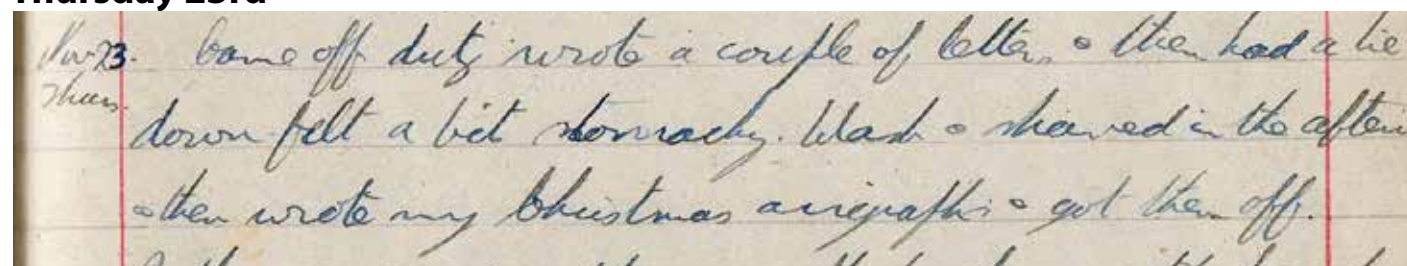 Thursday 23rd
Nov 23. Came off duty wrote a couple of letters & then had a lie
Thurs. down felt a bit stomachy. Wash & shaved in the after
& then wrote my Christmas airgraphs & got them off.